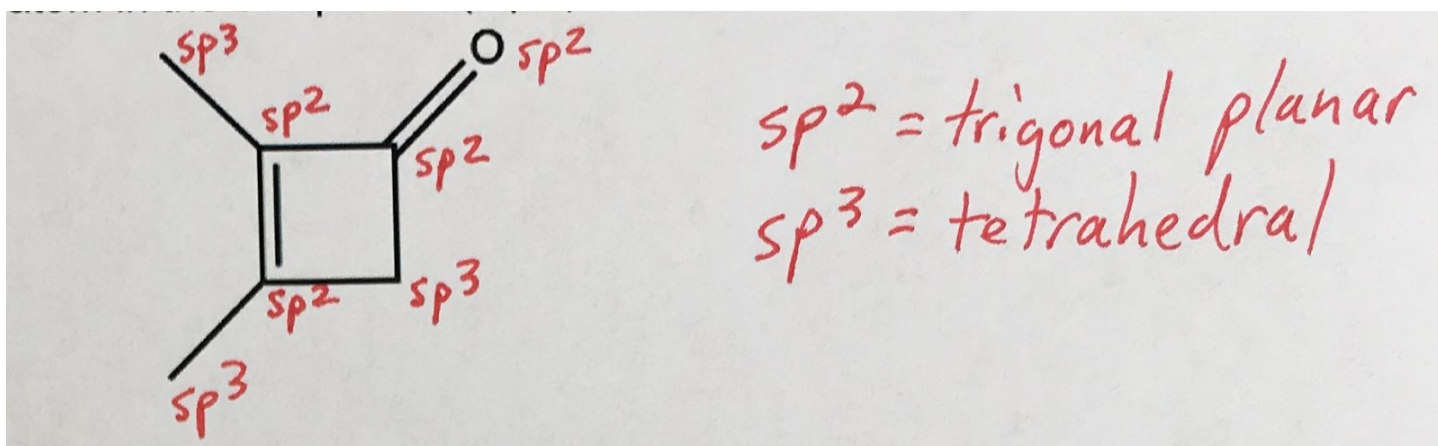 sp3
O sp2
sp2
sp2
sp2
sp3
sp3
sp2 = trigonal planar
sp3 = tetrahedral